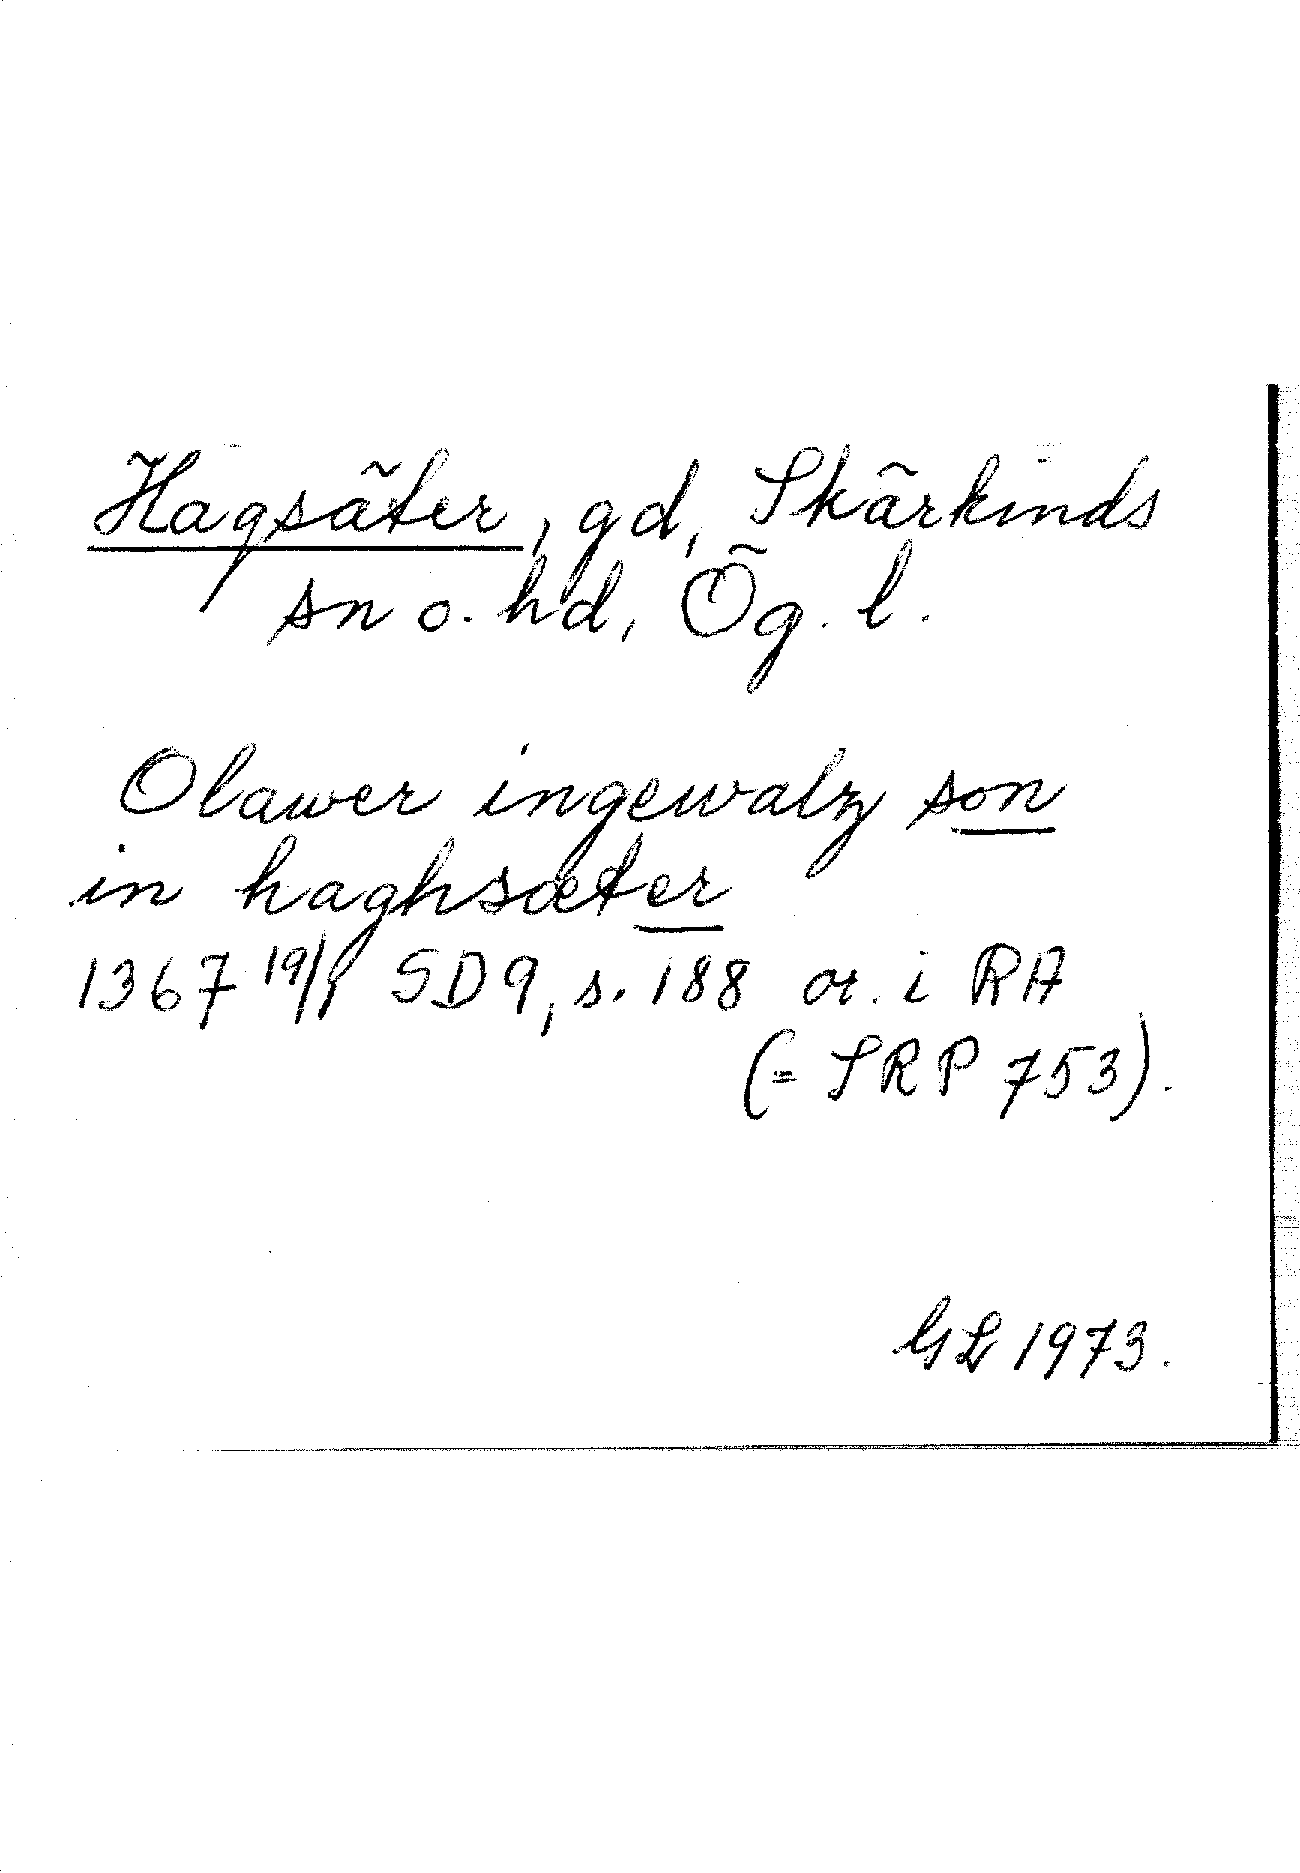 Hagsäter, gd, Skärkinds
sn o. hd, Ög. l.
Olawer ingewalz son
in haghsæter
1367 19/9 SD 9, s. 188 or. i RA
(= SRP 753).
GL 1973.